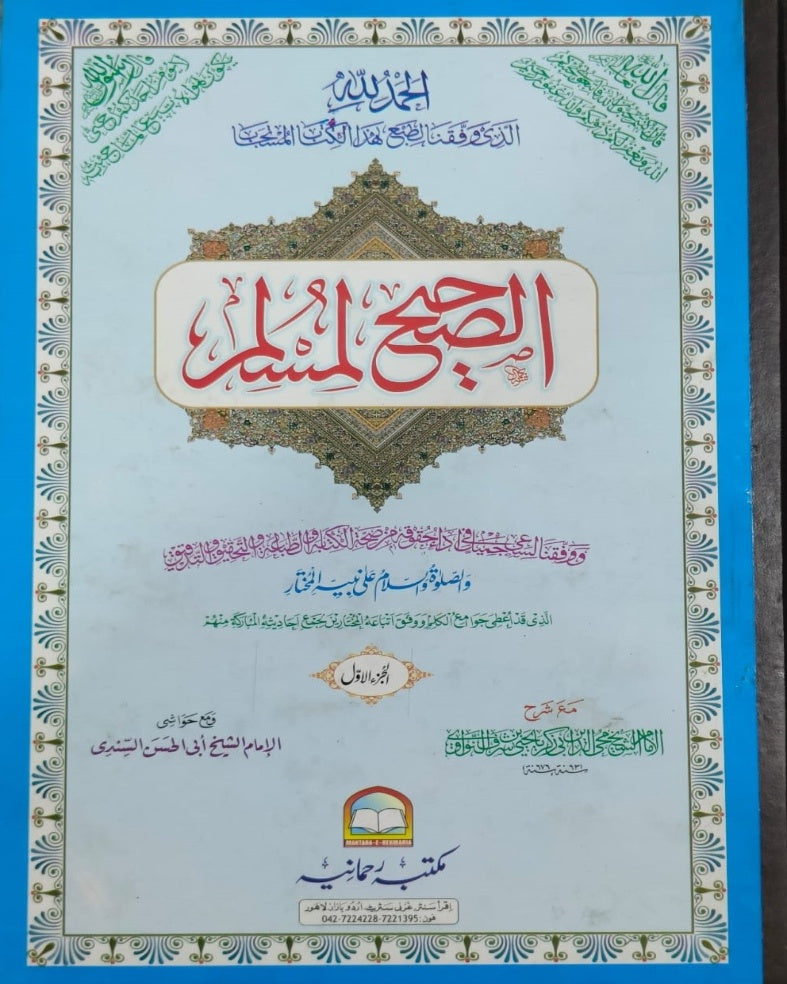 قال الله
قال رسول الله
الحمد لله
الذی وفقنا لطبع هذا الکتاب المستجاب
الصحیح لمسلم
ووفقنا لسعی جمیل فی اداء حقوقه من صحة الکتابة والطباعة والتحقیق والتدقیق
والصلوة والسلام علی نبیه المختار
الذی قد اعطی جوامع الکلم ووفق اتباعه المختارین بجمع احادیثه المبارکة منهم
الجزء الاوّل
مَعَ شرح
الامام الشیخ محی الدین ابی زکریا یحیی بن شرف النواوی
۶۳۱سنة ـ ۶۷۶سنة
ومع حواشی
الإمام الشیخ أبی الحسن السندی
MAKTABA-E-REHMANIA
مکتبہ رحمانیہ
اِقرأ سنٹر غزنی سٹریٹ اردو بازار لاهور
فون: 042-7224228-7221395